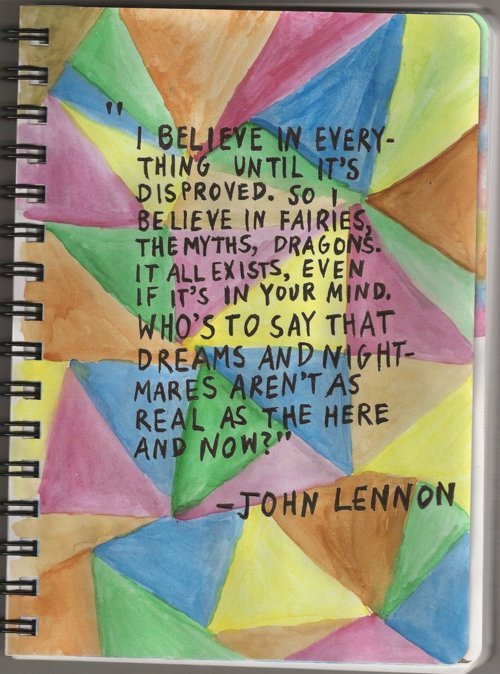 " I BELIEVE IN EVERY-
THING UNTIL IT'S
DISPROVED. SO I
BELIEVE IN FAIRIES,
THE MYTHS, DRAGONS.
IT ALL EXISTS, EVEN
IF IT'S IN YOUR MIND.
WHO'S TO SAY THAT
DREAMS AND NIGHT-
MARES AREN'T AS
REAL AS THE HERE
AND NOW?"
-JOHN LENNON